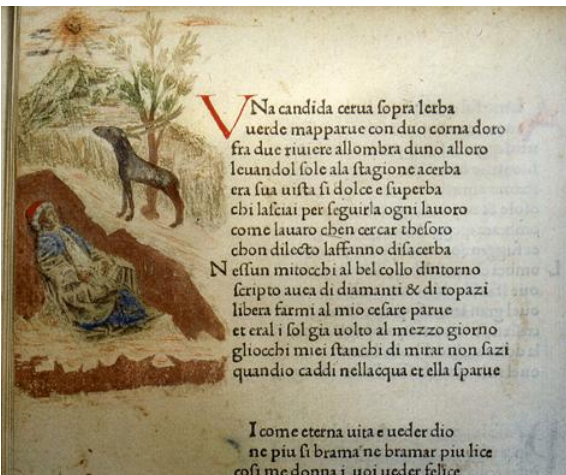 VNa candida cerua sopra lerba
uerde mapparue con duo corna doro
fra due riuiere allombra duno alloro
leuandol sole ala stagione acerba
era sua uista si dolce e superba
chi lasciai per seguirla ogni lauoro
come lauaro chen cercar thesoro
chon dilecto laffanno disacerba
N essun mitocchi al bel collo dintorno
scripto auea di diamanti & di topazi
libera farmi al mio cesare parue
et eral i sol gia uolto al mezzo giorno
gliocchi miei stanchi di mirar non sazi
quandio caddi nellacqua et ella sparue
I come eterna uita e ueder dio
ne piu si brama ne bramar piu lice
cosi me donna i uoi ueder felice